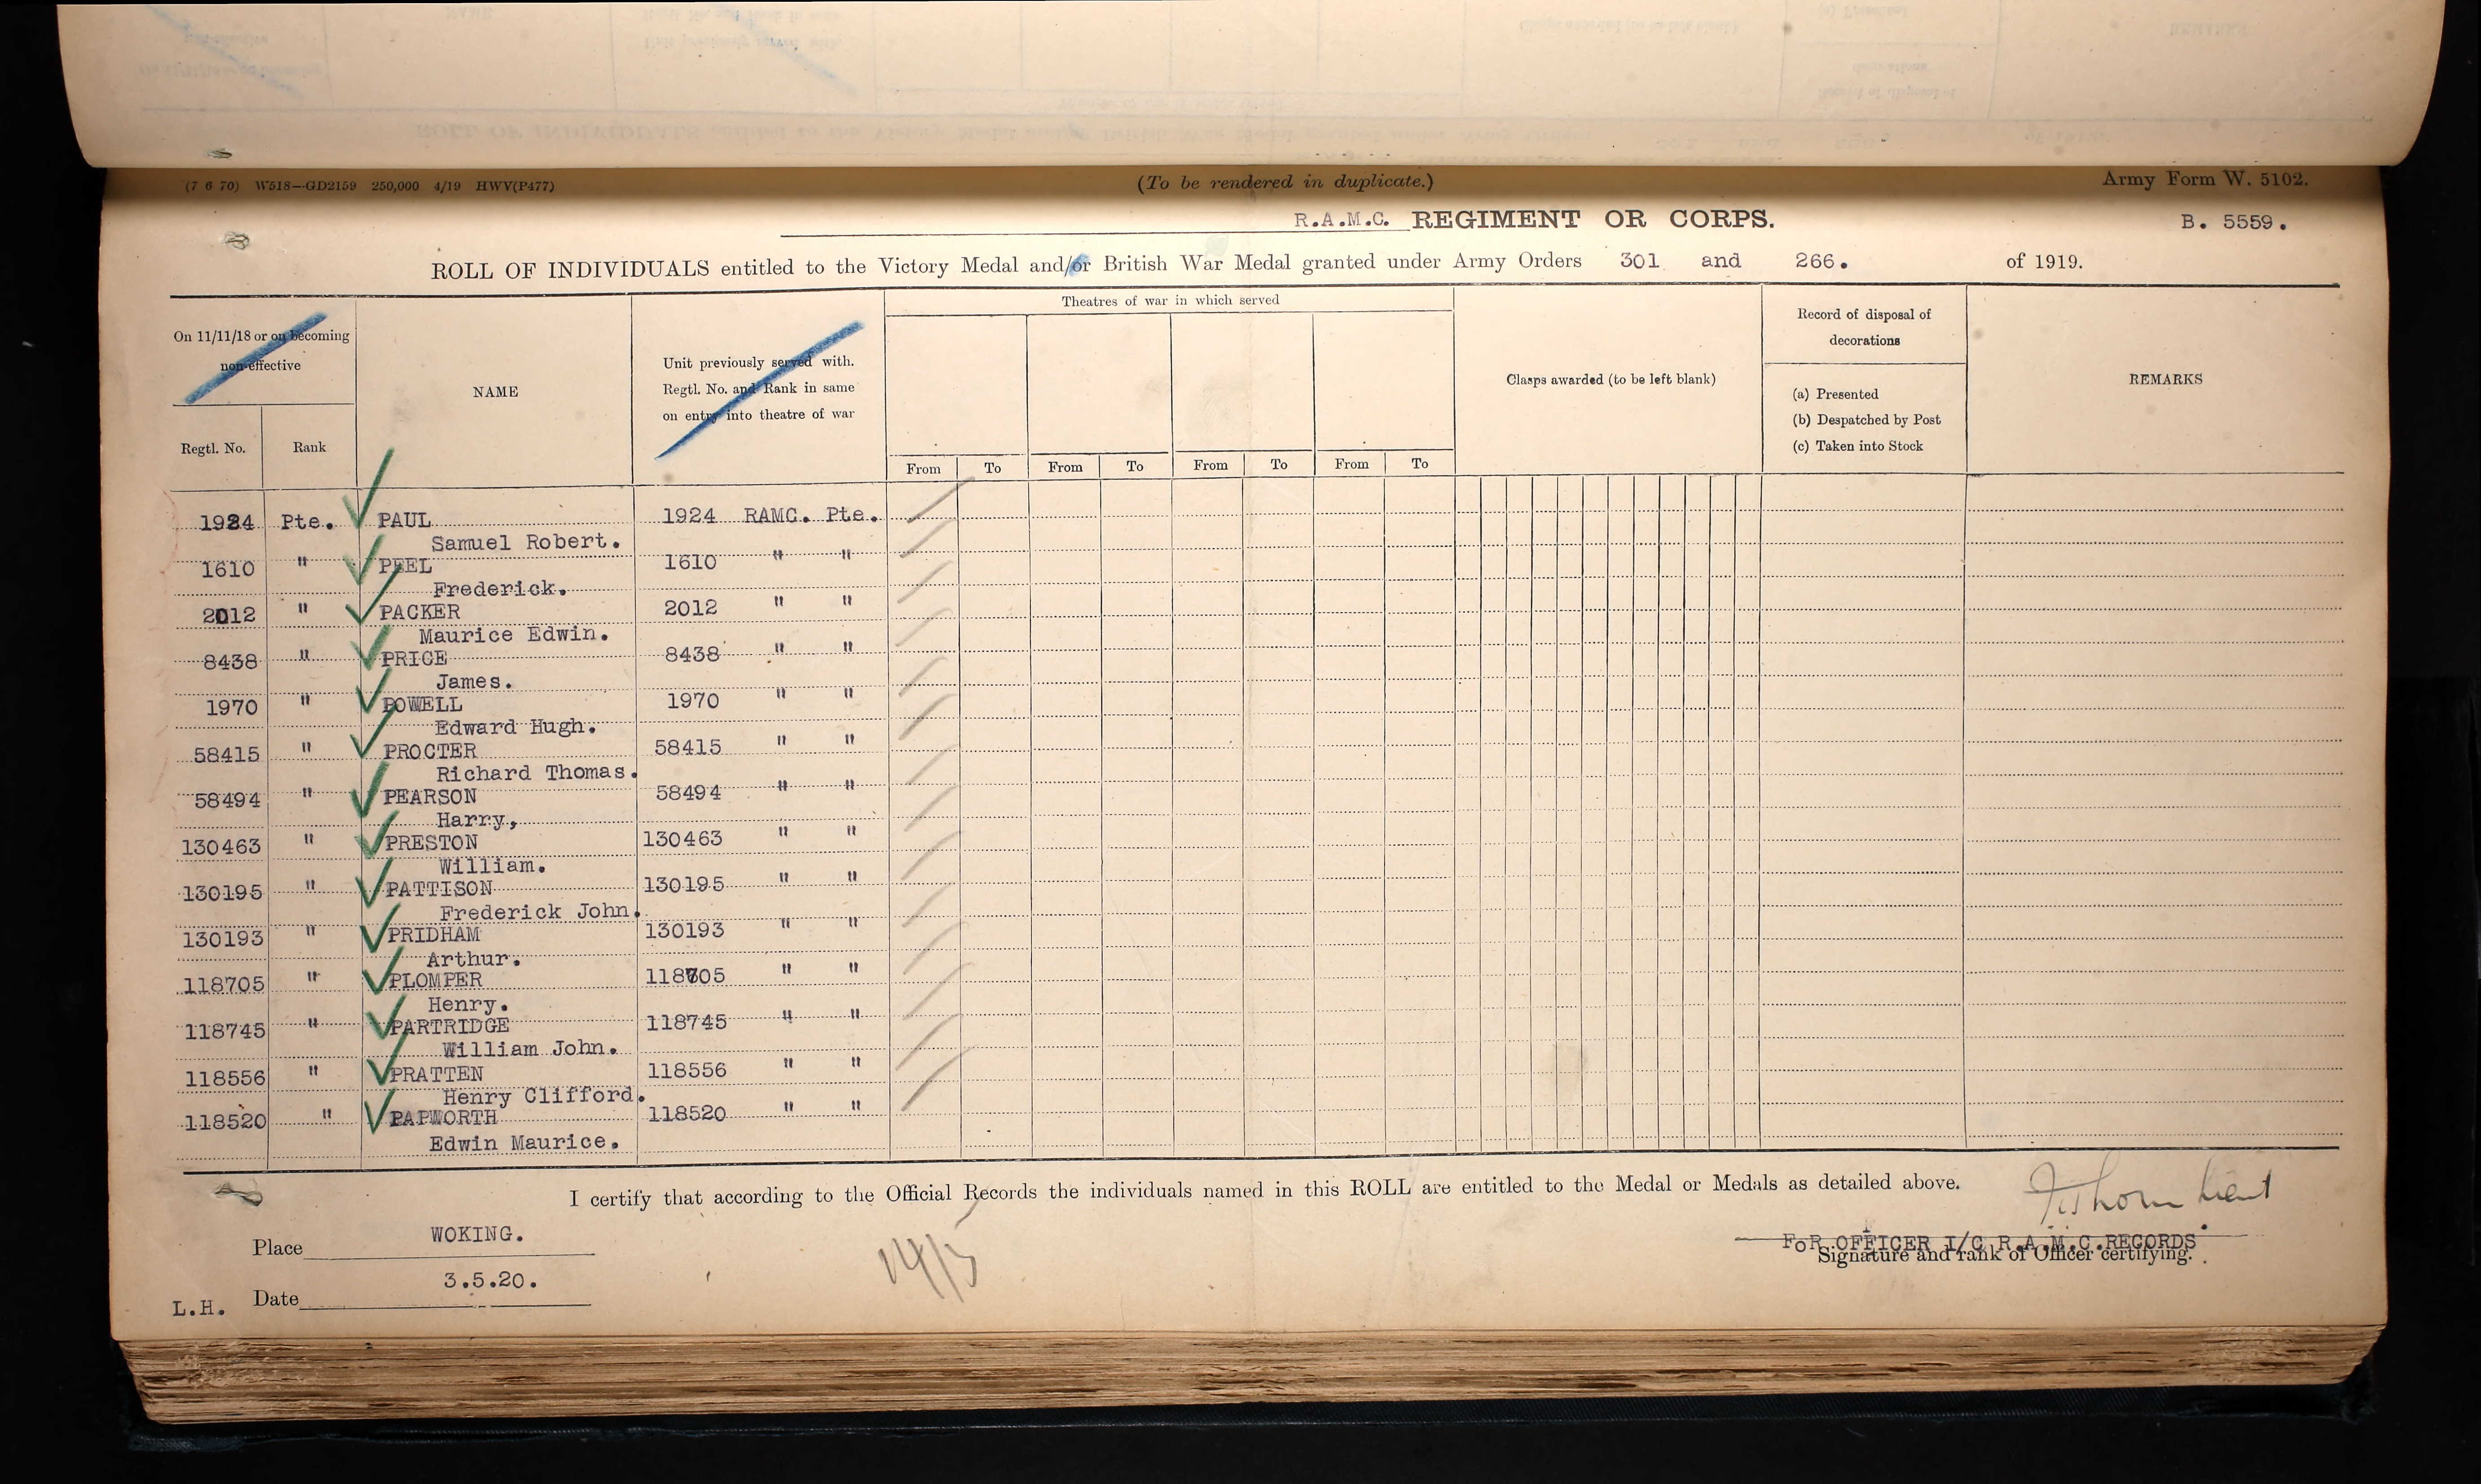 (7 6 70) W518—GD2159 250,000 4/19 HWV(P477) (To be rendered in duplicate.) Army Form W. 5102.
R.A.M.C. REGIMENT OR CORPS. B. 5559.
ROLL OF INDIVIDUALS entitled to the Victory Medal and/or British War Medal granted under Army Orders 301 and 266. of 1919.
On 11/11/18 or on becoming
non-effective
Regtl. No. Rank
NAME
Unit previously served with.
Regtl. No. and Rank in same
on entry into theatre of war
Theatres of war in which served
From To From To From To From To
Clasps awarded (to be left blank)
Record of disposal of
decorations
(a) Presented
(b) Despatched by Post
(c) Taken into Stock
REMARKS
1924 Pte. PAUL 1924 RAMC. Pte.
Samuel Robert.
1610 " PEEL 1610 " "
Frederick.
2012 " PACKER 2012 " "
Maurice Edwin.
8438 " PRICE 8438 " "
James.
1970 " POWELL 1970 " "
Edward Hugh.
58415 " PROCTER 58415 " "
Richard Thomas.
58494 " PEARSON 58494 " "
Harry,
130463 " PRESTON 130463 " "
William.
130195 " PATTISON 130195 " "
Frederick John.
130193 " PRIDHAM 130193 " "
Arthur.
118705 " PLOMPER 118705 " "
Henry.
118745 " PARTRIDGE 118745 " "
William John.
118556 " PRATTEN 118556 " "
Henry Clifford.
118520 " PAPWORTH 118520 " "
Edwin Maurice.
I certify that according to the Official Records the individuals named in this ROLL are entitled to the Medal or Medals as detailed above.
Place WOKING.
FoR OFFICER I/C R.A.M.C. RECORDS
Signature and rank of Officer certifying.
Date 3.5.20.
L.H.